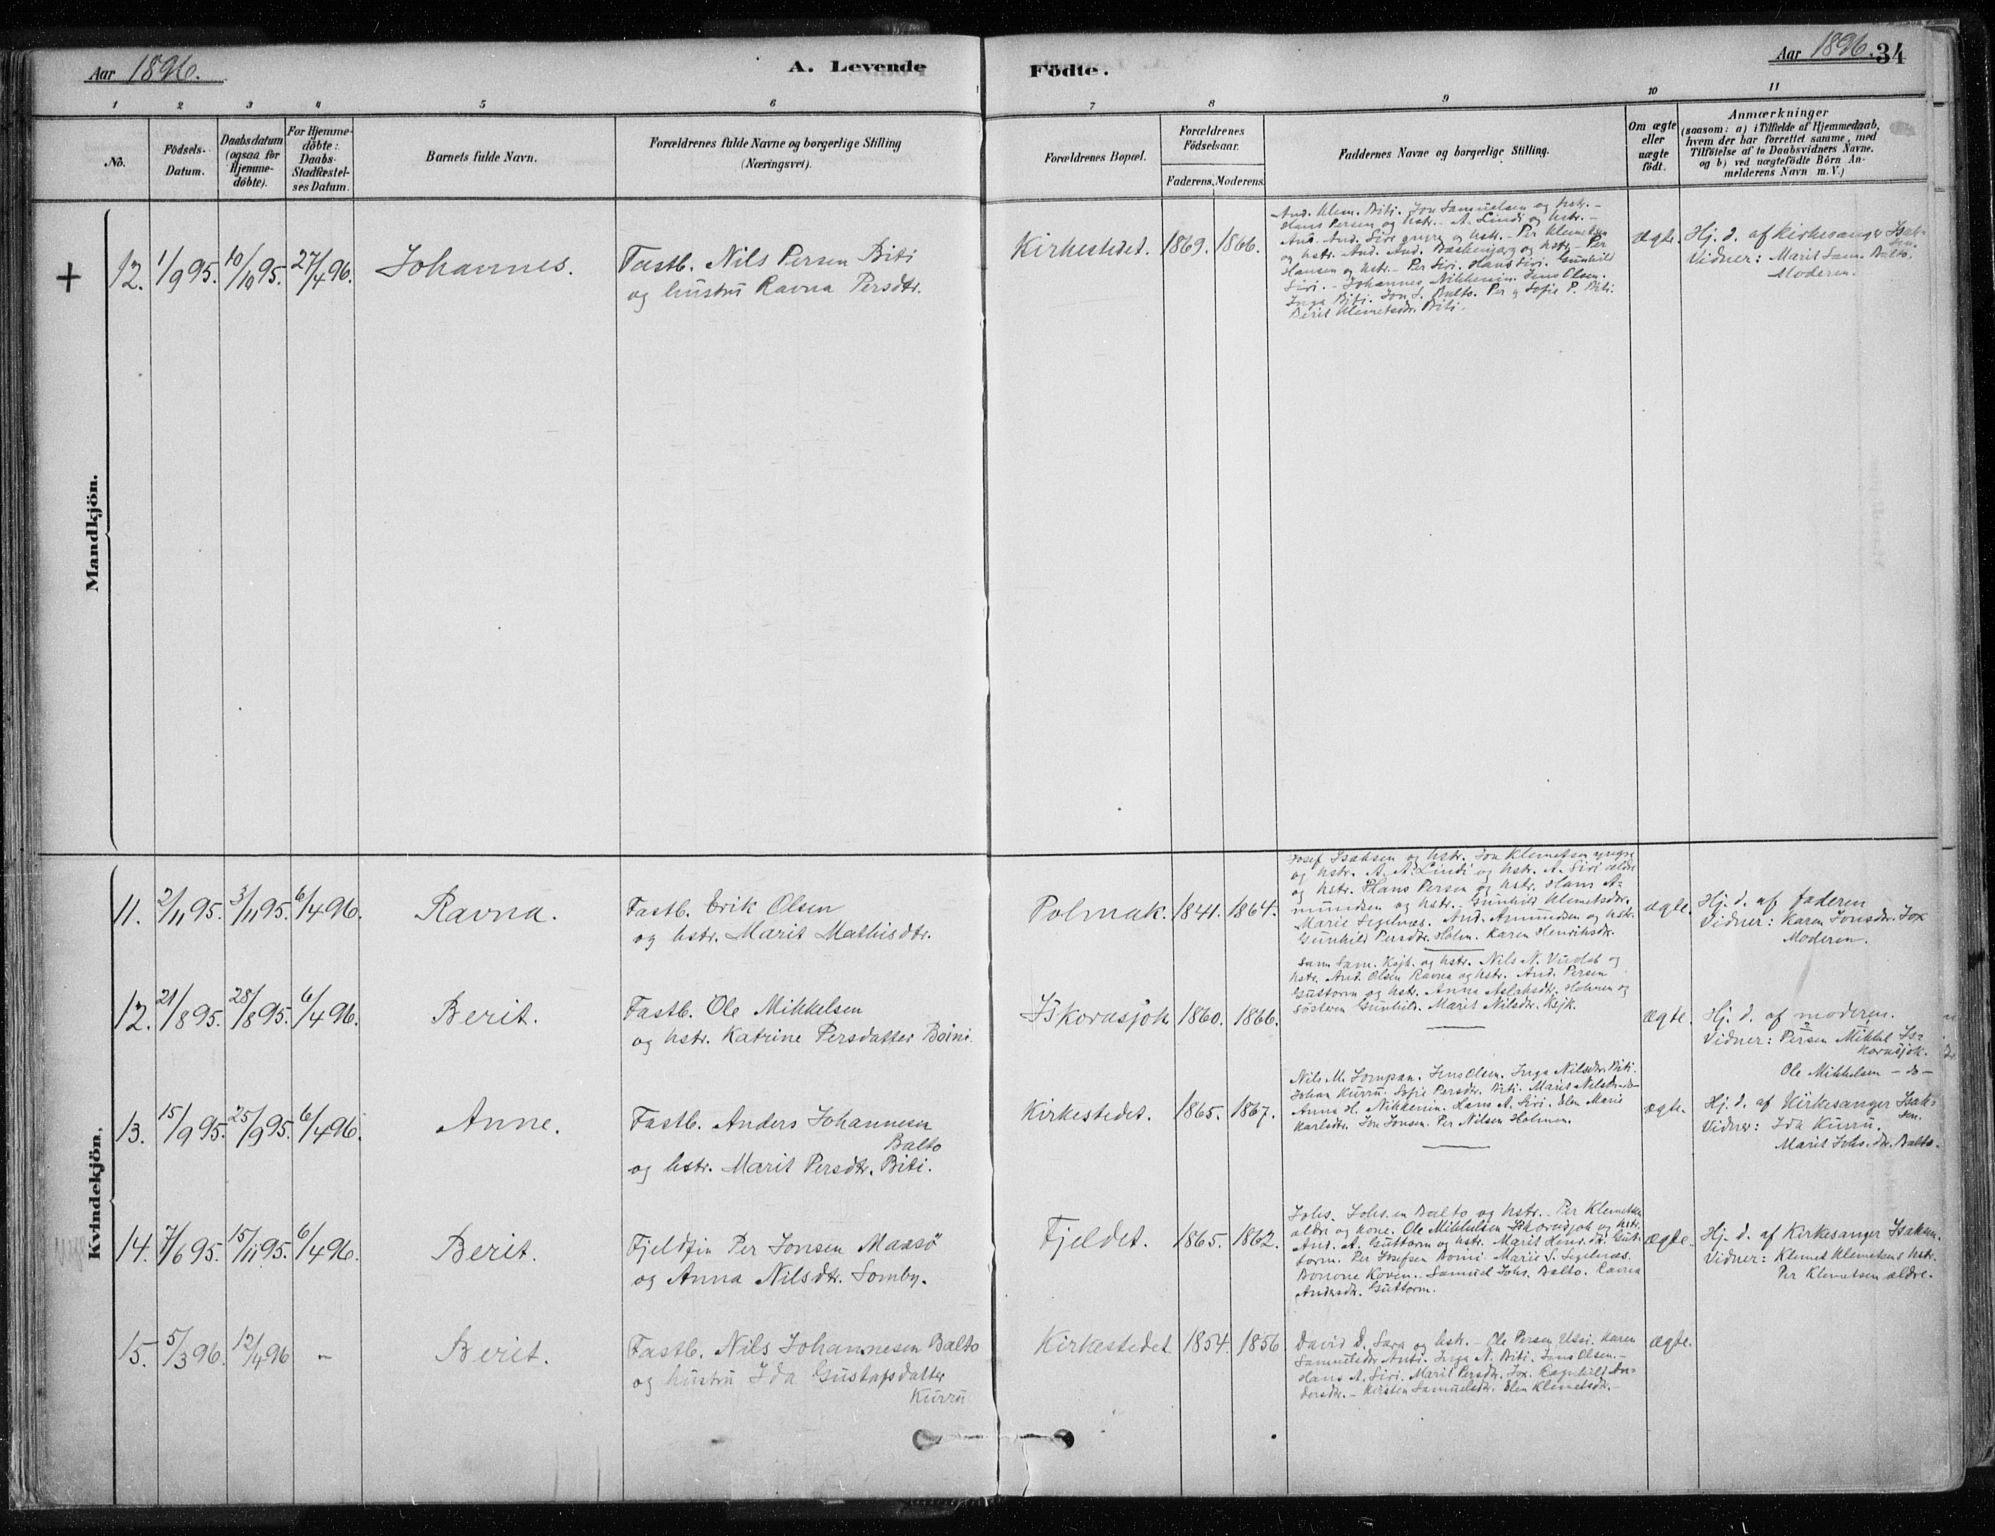 Aar 1896.
A. Levende
Födte.
Aar 1896.
34
1 2 3 4 5 6 7 8 9 10 11
No.
Födsels-
Datum.
Daabsdatum
(ogsaa for
Hjemme-
döbte).
For Hjemme-
döbte:
Daabs-
Stadfæstel-
ses Datum.
Barnets fulde Navn.
Forældrenes fulde Navne og borgerlige Stilling
(Næringsvei).
Forældrenes Bopæl.
Forældrenes
Födselsaar.
Faderens. Moderens.
Faddernes Navne og borgerlige Stilling.
Om ægte
eller
uægte
födt.
Anmærkninger
(saasom: a) i Tilfælde af Hjemmedaab,
hvem der har forrettet samme, med
Tilföielse af to Daabsvidners Navne.
og b) ved uægtefödte Börn An-
melderens Navn m. V.)
Mandkjön.
+ 12. 1/9 95. 10/10 95. 27/4 96.
Johannes.
Fastb. Nils Persen Biti
og hustru Ravna Persdtr.
Kirkestedet. 1869. 1866.
And. Klem. Biti. Jon Samuelsen og hstr. -
Hans Persen og hstr. - A. Lindi og hstr. -
And. And. Siri yngre og hstr. - Per Klemetsen
og hstr. And. And. Baskenjarg og hstr. - Per
Hansen og hstr. - Per Siri. Hans Siri. Gunhild
Siri. - Johannes Nikkenin. Jens Olsen.
Inga Biti. Jon S. Balto. Per og Sofie P. Biti.
Berit Klemetsdr. Biti.
ægte.
Hj. d. af Kirkesanger Isak-
sen.
Vidner: Marit Sam. Balto.
Moderen.
Kvindekjön.
11. 2/11 95. 3/11 95. 6/4 96.
Ravna.
Fastb. Erik Olsen
og hstr. Marit Mathisdtr.
Polmak. 1841. 1864.
Josef Isaksen og hstr. Jon Klemetsen yngre
og hstr. A. A. Lindi og hstr. A. Siri ældre
og hstr. Hans Persen og hstr. Hans A-
mundsen og hstr. Gunhild Klemetsdr.
Marie Segelnæs. And. Amundsen og hstr.
Gunhild Persdtr. Holm. Karen Henriksdr.
ægte.
Hj. d. af faderen
Vidner: Karen Jonsdr. Jox
Moderen.
12. 21/8 95. 28/8 95. 6/4 96.
Berit.
Fastb. Ole Mikkelsen
og hstr. Katrine Persdatter Boini.
Iskorasjok 1860. 1866.
Sam. Sam. Ksjk. og hstr. Nils N. Vuolab og
hstr. And. Olsen Ravna og hstr. And. Persen
Guttorm og hstr. Anna Aslaksdr. Holmen og
søsteren Gunhild. Marit Nilsdr. Ksjk.
ægte.
Hj. d. af moderen.
Vidner: Persen Mikkel Is-
korasjok.
Ole Mikkelsen - do -
13. 15/9 95. 25/9 95. 6/4 96.
Anne.
Fastb. Anders Johannesen
Balto
og hstr. Marit Persdtr. Biti.
Kirkestedet. 1865. 1867.
Nils M. Jompan. Jens Olsen. Inga Nilsdr. Biti.
Johan Kurru. Sofie Persdtr. Biti. Marit Nilsdr. do
Anna H. Nikkenin. Hans A. Siri. Elen Marie
Karlsdr. Jon Jonsen. Per Nilsen Holmen.
ægte.
Hj. d. af Kirkesanger Isak-
sen.
Vidner: Ida Kurru.
Marit Johs. dr. Balto.
14. 7/6 95. 15/11 95. 6/4 96.
Berit.
Fjeldfin Per Jonsen Maasö
og Anna Nilsdtr. Somby.
Fjeldet. 1865. 1862.
Johs. Johs.en Balto og hstr. - Per Klemetsen
ældre og kone. Ole Mikkelsen Iskorasjok og hstr.
And. A. Guttorm og hstr. Marit Henr. dr. Gut-
torm. Per Josefsen Boini. Marie S. Segelnæs.
Bonone Koven. Samuel Johs. Balto. Ravna
Andersdr. Guttorm.
ægte.
Hj. d. af Kirkesanger Isaksen.
Vidner: Klemet Klemetsens hstr.
Per Klemetsen ældre.
15. 5/3 96. 12/4 96 -
Berit.
Fastb. Nils Johannesen Balto
og hustru Ida Gustafsdatter
Kurru
Kirkestedet 1854. 1856
David D. Sara og hstr. - Ole Persen Utsi. Karen
Samuelsdr Anti. Inga N. Biti. Jens Olsen. -
Hans A. Siri. Marit Persdtr. Jox. Ragnhild An-
dersdr. - Kirsten Samuelsdr. Elen Klemetsdr. -
ægte.